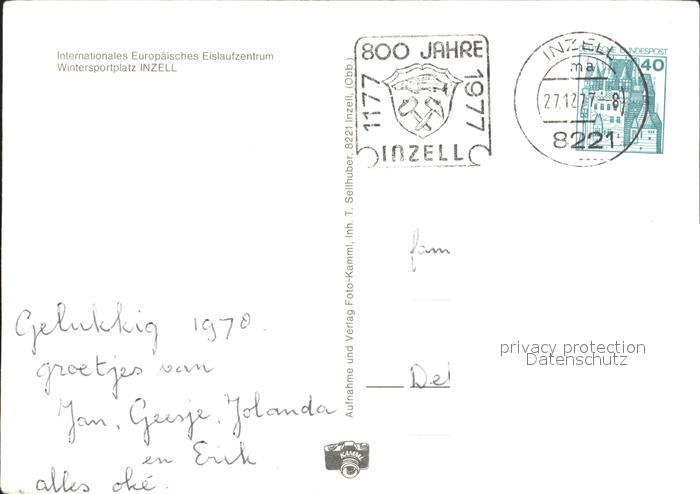 Internationales Europäisches Eislaufzentrum
Wintersportplatz INZELL
800 JAHRE
1177
1977
INZELL
INZELL
ma
27.12.77-8
8221
BUNDESPOST
40
Aufnahme und Verlag Foto-Kamml, Inh. T. Sellhuber, 8221 Inzell, (Obb)
fam
Del
privacy protection
Datenschutz
Gelukkig 1978.
groetjes van
Jan, Geesje, Jolanda
en Erik
alles oké.
KAMML